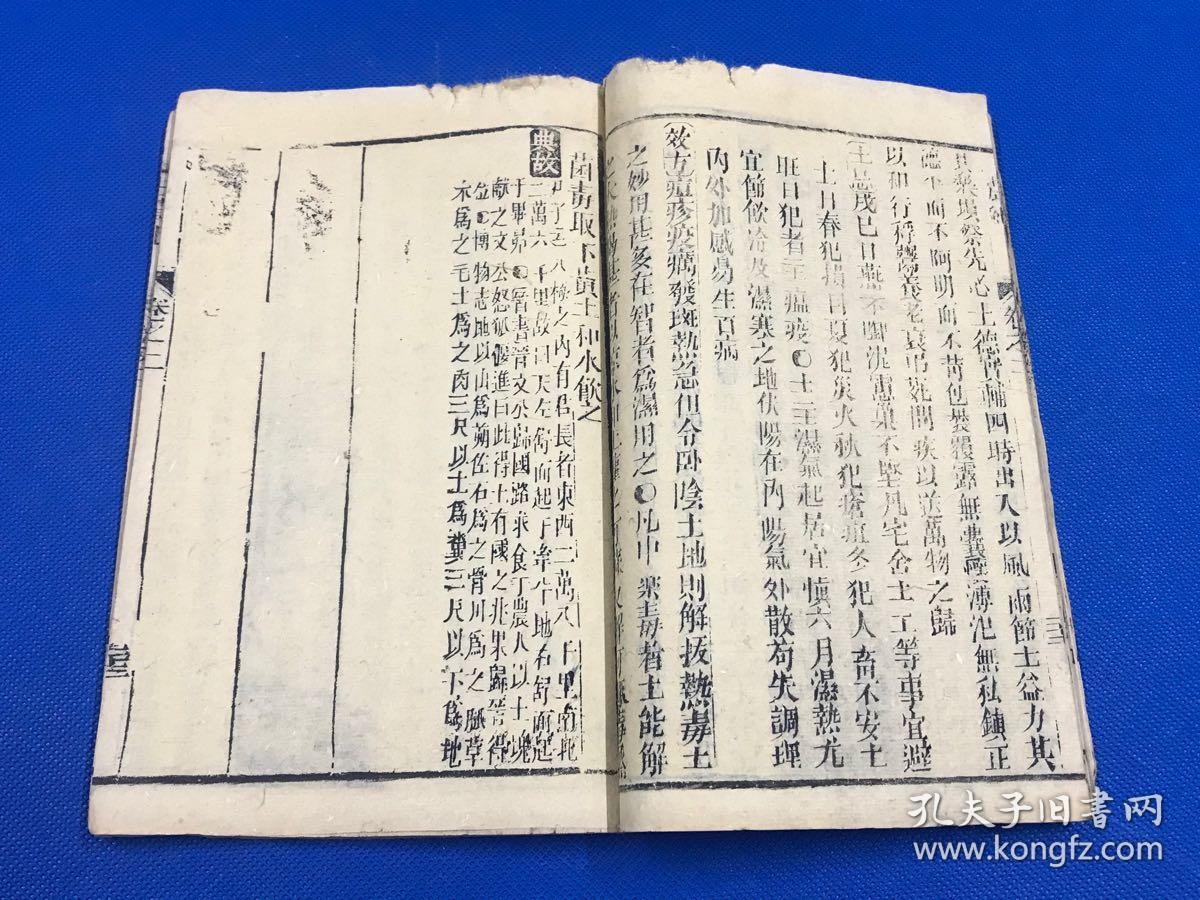 其祭場祭先心土德實輔四時出入以風雨節土益力其
德平而不阿明而不苛包裹覆露無囊薄氾無私鎮正
以和行稃鬻養老衰吊死問疾以送萬物之歸
土忌戊巳日燕不啣泥蕙巢不堅凡宅舍土工等事宜避
土日春犯損目夏犯災火秋犯瘡疽冬犯人畜不安土
旺日犯者主瘟疫○土主濕氣起居宜慎六月濕熱尤
宜節飲冷及濕寒之地伏陽在內陽氣外散苟失調理
內外加感易生百病
效方痘疹疫癘發斑熱急但令臥陰土地則解拔熱毒土
之妙用甚多在智者為濕用之○凡中藥毒者土能解
菌毒取下黃土和水飲之
典故
八極之內有君長者東西二萬八千里南北
二萬六千里故曰天左舒而起于牽牛地右舒而起
于畢昴○晉書晉文公歸國路求食于農人以土塊
獻之文公怒狐偃進曰此得土有國之兆果歸晉得
位○博物志地以山為 佐石為之骨川為之脈草
木為之毛土為之肉三尺以土為糞三尺以下為地
卷之二
孔夫子旧书网
www.kongfz.com